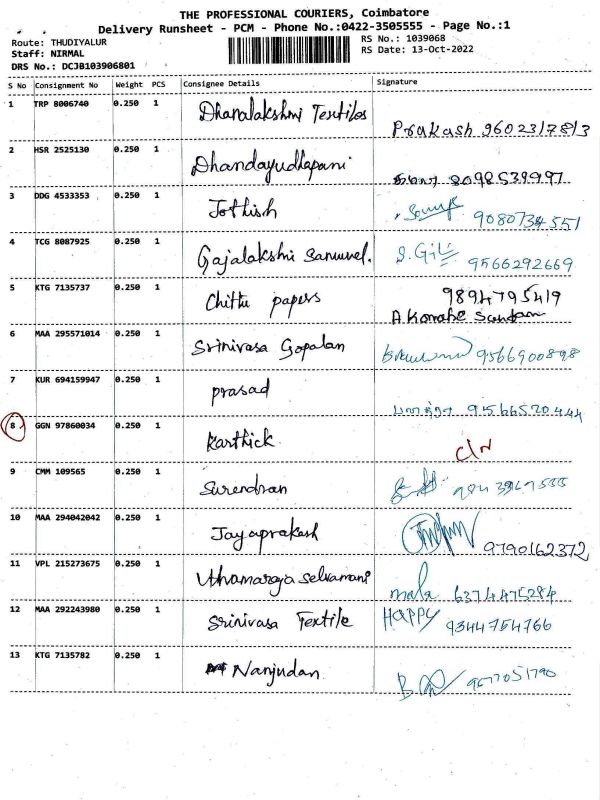 THE PROFESSIONAL COURIERS, Coimbatore
Delivery Runsheet - PCM - Phone No.:0422-3505555 - Page No.:1
Route: THUDIYALUR RS No.: 1039068
Staff: NIRMAL RS Date: 13-Oct-2022
DRS No.: DCJB103906801
S No Consignment No Weight PCS Consignee Details Signature
1 TRP 8006740 0.250 1 Dhanalakshmi Textiles
Prakash 9602317813
2 HSR 2525130 0.250 1 Dhandayudhapani
8098539997
3 DDG 4533353 0.250 1 Jothish
9080734551
4 TCG 8087925 0.250 1 Gajalakshmi Samuvel. S. Gil
9566292669
5 KTG 7135737 0.250 1 Chithi papers 9894795419
A
6 MAA 295571014 0.250 1 Srinivasa Gopalan
9566900898
7 KUR 694159947 0.250 1 prasad
9566520444
8 GGN 97860034 0.250 1 Karthick
C/N
9 CMM 109565 0.250 1 Surendran
10 MAA 294042042 0.250 1 Jayaprakash
9790162372
11 VPL 215273675 0.250 1 Uthamaraja selvamani
mala 6374475284
12 MAA 292243980 0.250 1 Srinivasa Textile HAPPY 9344754766
13 KTG 7135782 0.250 1 Nanjudan
9677051790